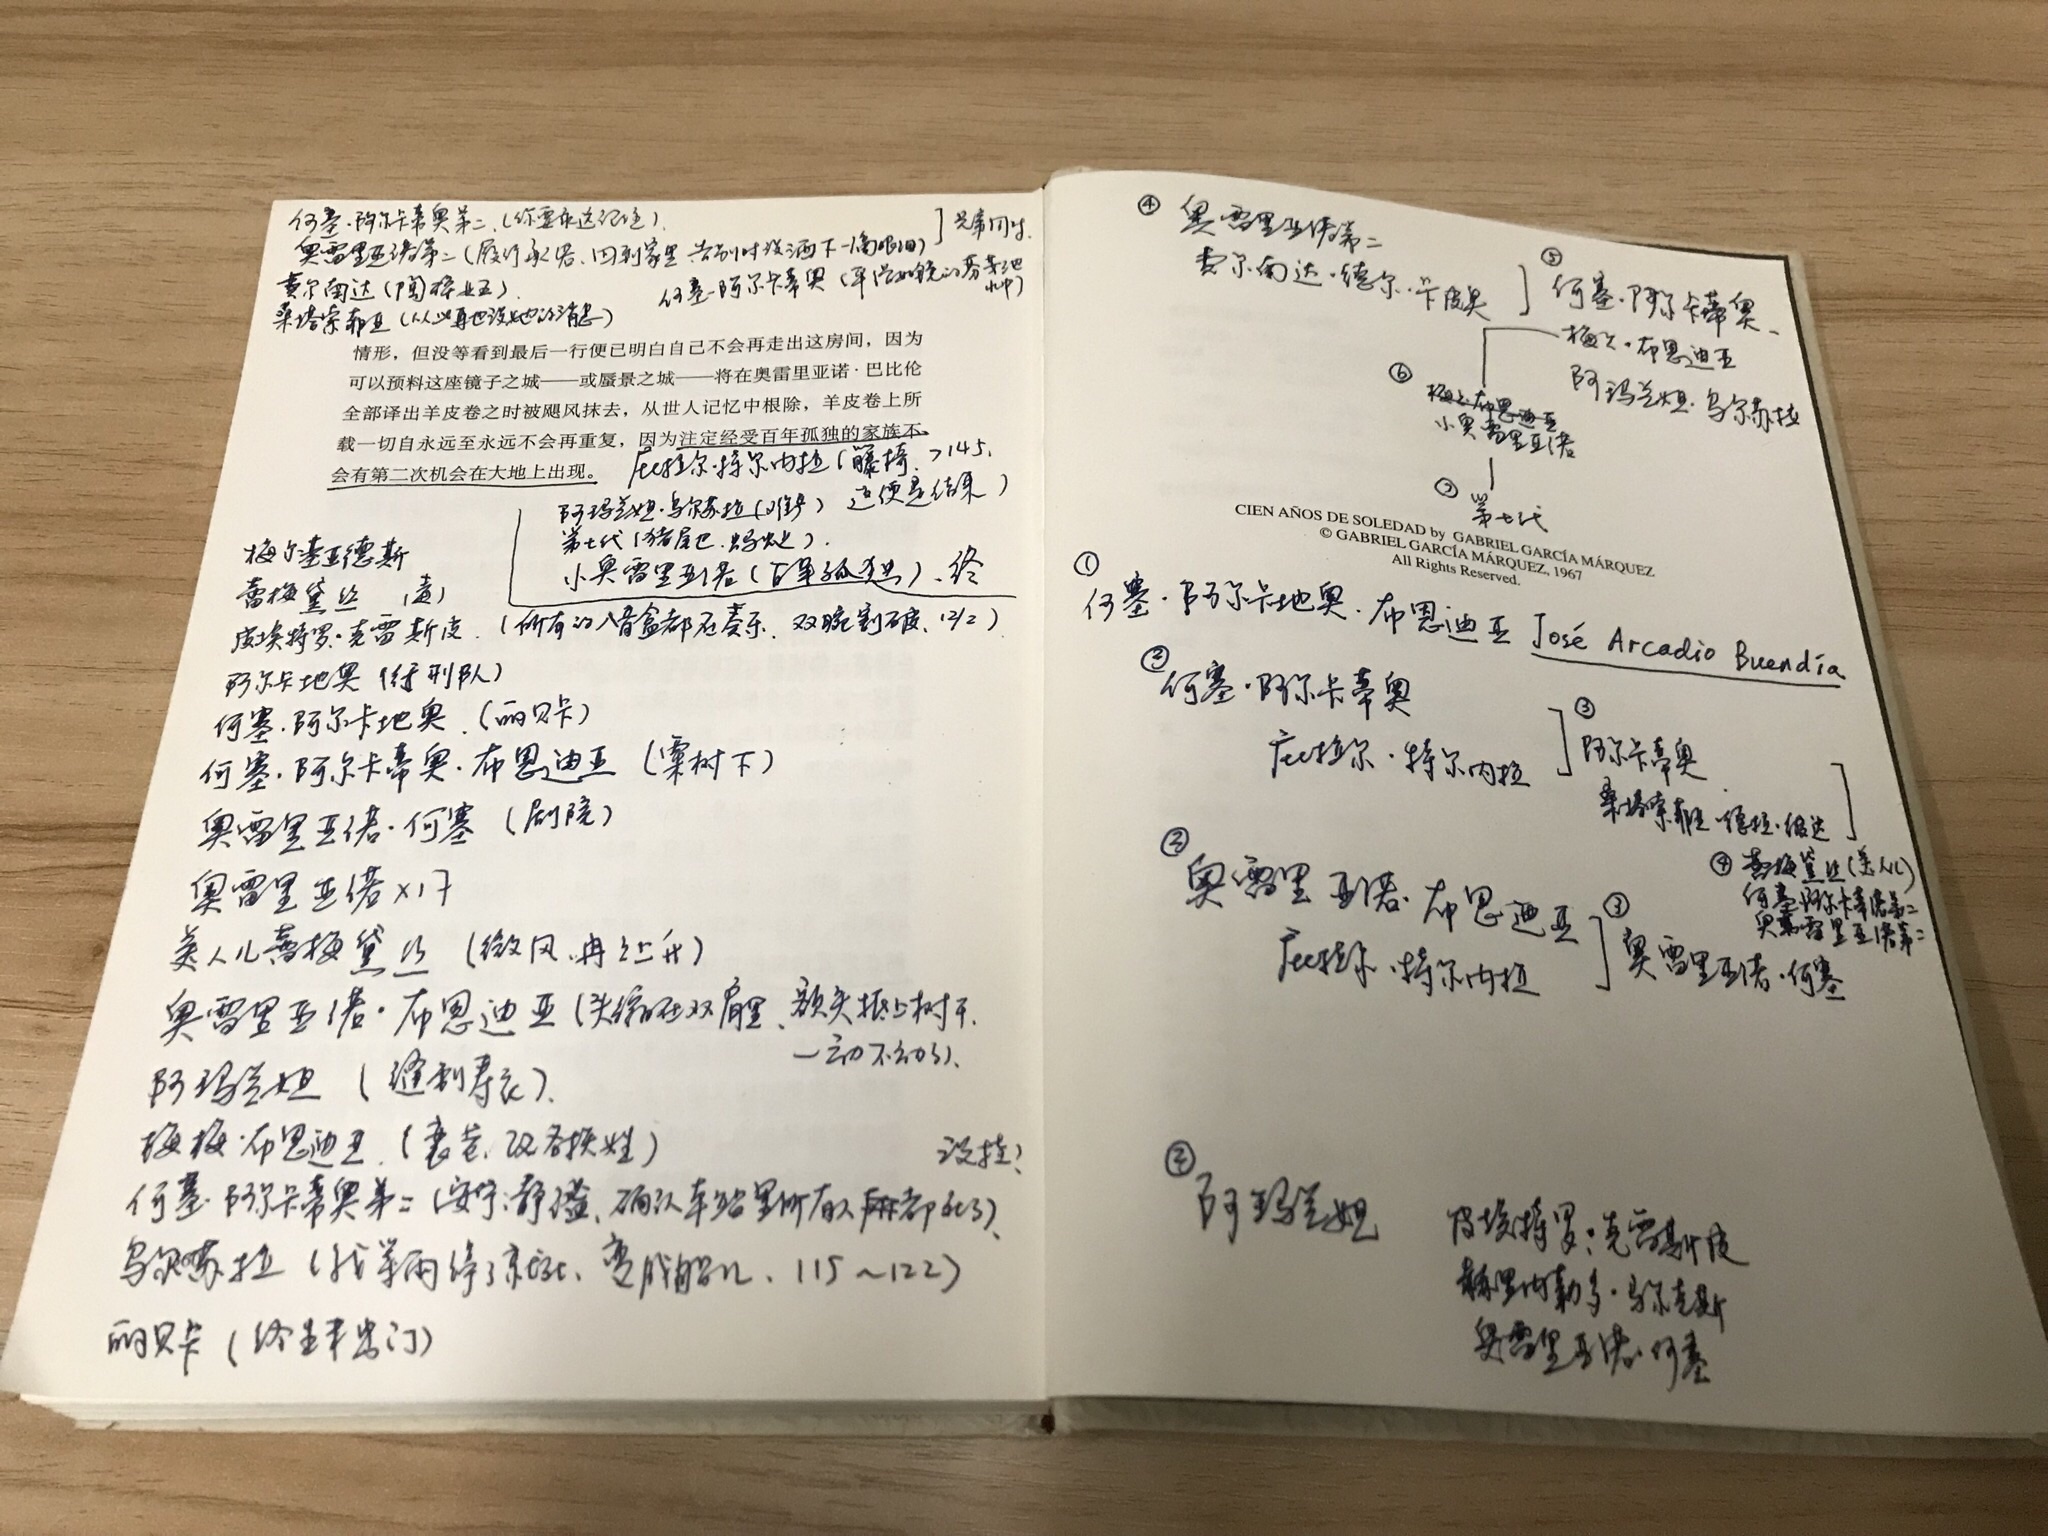 何塞·阿尔卡蒂奥第二（你要永远记住）
奥雷里亚诺第二（履行承诺、回到家里 告别时没洒下一滴眼泪）
兄弟同时
费尔南达
何塞·阿尔卡蒂奥（平滑如镜的芳芬池水中）
桑塔索菲亚（从此再也没她的消息）
情形，但没等看到最后一行便已明白自己不会再走出这房间，因为
可以预料这座镜子之城——或蜃景之城——将在奥雷里亚诺·巴比伦
全部译出羊皮卷之时被飓风抹去，从世人记忆中根除，羊皮卷上所
载一切自永远至永远不会再重复，因为注定经受百年孤独的家族不
会有第二次机会在大地上出现。
庇拉尔·特尔内拉（藤椅、>145、
这便是结果）
阿玛兰妲·乌尔苏拉（难产）
第七代（猪尾巴、蚂蚁）.
小奥雷里亚诺（百年孤独）、终
梅尔基亚德斯
蕾梅黛丝（毒）
皮埃特罗·克雷斯皮（所有的八音盒都在奏乐、双腕割破、12/2）
阿尔卡地奥（行刑队）
何塞·阿尔卡地奥（丽贝卡）
何塞·阿尔卡蒂奥·布恩迪亚（栗树下）
奥雷里亚诺·何塞（剧院）
奥雷里亚诺×17
美人儿蕾梅黛丝（微风、冉冉上升）
奥雷里亚诺·布恩迪亚（头缩在双肩里、额头抵上树干、
一动不动了）、
阿玛兰妲（缝制寿衣）、
梅梅·布恩迪亚（衰老、改名换姓）
没挂？
何塞·阿尔卡蒂奥第二（安宁、静谧、确认车站里所有人都死了）、
乌尔苏拉（我等雨停了就死、变成胎儿、115～122）
丽贝卡（终生未出门）
④ 奥雷里亚诺第二
费尔南达·德尔·卡皮奥
⑤ 何塞·阿尔卡蒂奥、
梅梅·布恩迪亚
阿玛兰妲·乌尔苏拉
⑥ 梅梅布恩迪亚
小奥雷里亚诺
⑦ 第七代
CIEN AÑOS DE SOLEDAD by GABRIEL GARCÍA MÁRQUEZ
© GABRIEL GARCÍA MÁRQUEZ, 1967
All Rights Reserved.
① 何塞·阿尔卡地奥·布恩迪亚 José Arcadio Buendía
② 何塞·阿尔卡蒂奥
庇拉尔·特尔内拉
③ 阿尔卡蒂奥
桑塔索菲亚·德拉·彼达
④ 蕾梅黛丝（美人儿）
何塞·阿尔卡蒂诺第二
奥雷里亚诺第二
② 奥雷里亚诺·布恩迪亚
庇拉尔·特尔内拉
③ 奥雷里亚诺·何塞
② 阿玛兰妲
皮埃特罗·克雷斯皮
赫里内勒多·马尔克斯
奥雷里亚诺·何塞